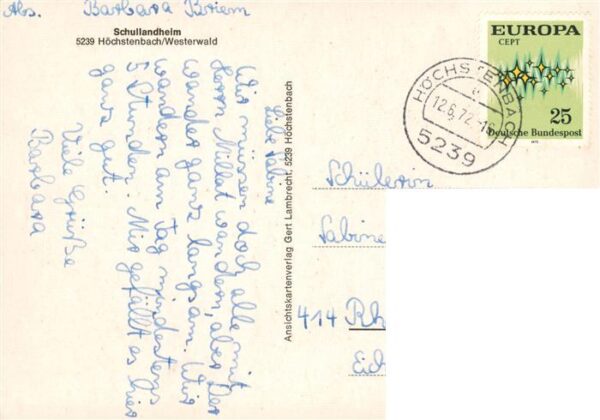 Abs. Barbara Briem
Schullandheim
5239 Höchstenbach/Westerwald
Liebe Sabine
Wir müssen doch alle mit
Herrn Müllat wandern, aber der
wandert ganz langsam. Wir
wandern am Tag mindestens
5 Stunden. Mir gefällt es hier
ganz gut.
Viele Grüße
Barbara
Ansichtskartenverlag Gert Lambrecht, 5239 Höchstenbach
EUROPA
CEPT
25
Deutsche Bundespost
HÖCHSTENBACH
12.6.72-16
5239
Schülerin
Sabine
414 Rh
Eic